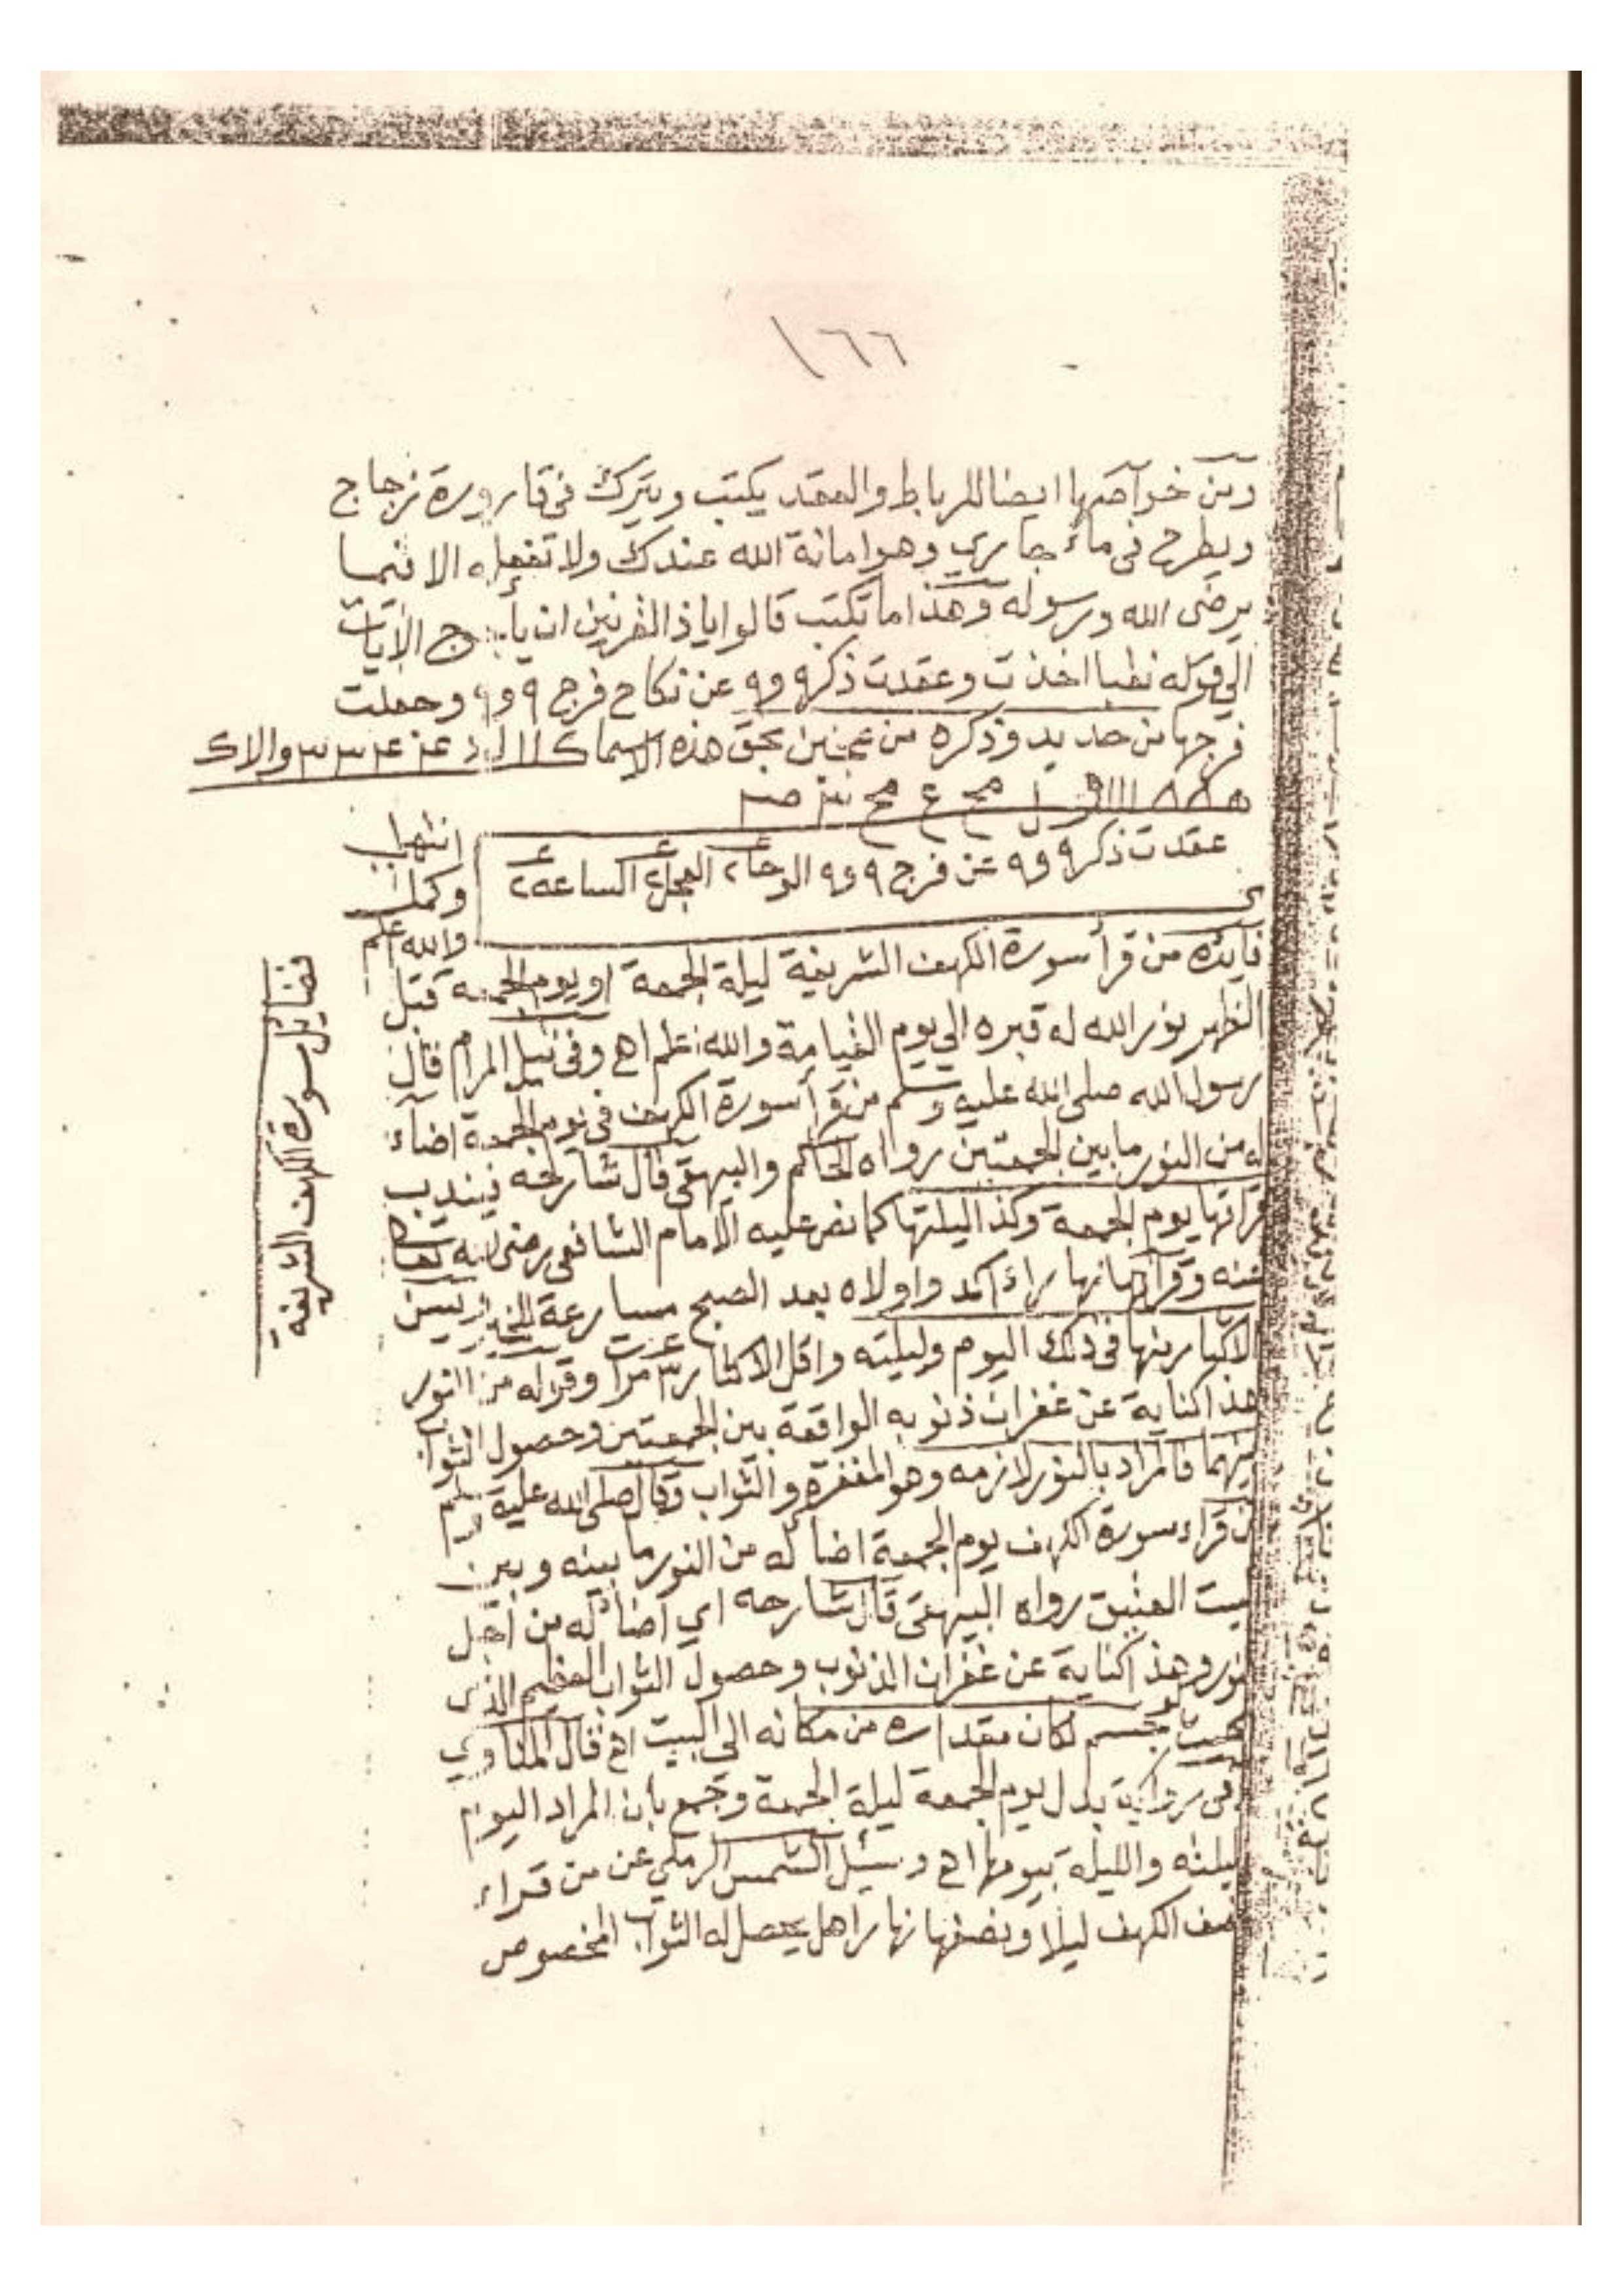 ١٦٦
ومن خواصها ايضا للرباط والعقد يكتب ويترك في قارورة زجاج
ويطرح في ماء جاري وهو امانة الله عندك ولا تفعله الا فيما
يرضى الله ورسوله وهذا ما تكتب قالوا ياذا القرنين ان يأجوج الآيات
الى قوله نقبا اخذت وعقدت ذكر ٩ و٩ عن نكاح فرج ٩ و٩ وجعلت
فرجها من حديد وذكره من عجين بحق هذه الاسما
عقدت ذكر ٩ و٩ عن فرج ٩ و٩ الوحا ٢ العجل ٢ الساعه ٢
انتهاب
وكملت
والله اعلم
فضايل سورة الكهف الشريفة
فايده من قرأ سورة الكهف الشريفة ليلة الجمعة او يوم الجمعة قبل
الظهر نور الله له قبره الى يوم القيامة والله اعلم اه وفي نيل المرام قال
رسول الله صلى الله عليه وسلم من قرأ سورة الكهف في يوم الجمعة اضاء
له من النور ما بين الجمعتين رواه الحاكم والبيهقي قال شارحه فيندب
قراتها يوم الجمعة وكذا ليلتها كما نص عليه الامام الشافعي رضى الله تعالى
عنه وقرأتها نهارا اكد واولاه بعد الصبح مسارعة للخير ويسن
الاكثار منها في ذلك اليوم وليلته واقل الاكثار ٣ مرات وقوله من النور
هذا كناية عن غفران ذنوبه الواقعة بين الجمعتين وحصول الثواب
فيهما فالمراد بالنور لازمه وهو المغفرة والثواب وقال صلى الله عليه وسلم
من قراء سورة الكهف يوم الجمعة اضا له من النور ما بينه وبين
البيت العتيق رواه البيهقي قال شارحه اي اضا له من اجل
النور وهذا كناية عن غفران الذنوب وحصول الثواب العظيم الذي
بحيث لو جسم لكان مقداره من مكانه الى البيت اه قال المناوي
وفي رواية بدل يوم الجمعة ليلة الجمعة وجمع بأن المراد اليوم
بليلته والليلة بيومها اه وسئل الشمس الرملي عن من قراء
نصف الكهف ليلا ونصفها نهارا هل يحصل له الثواب المخصوص